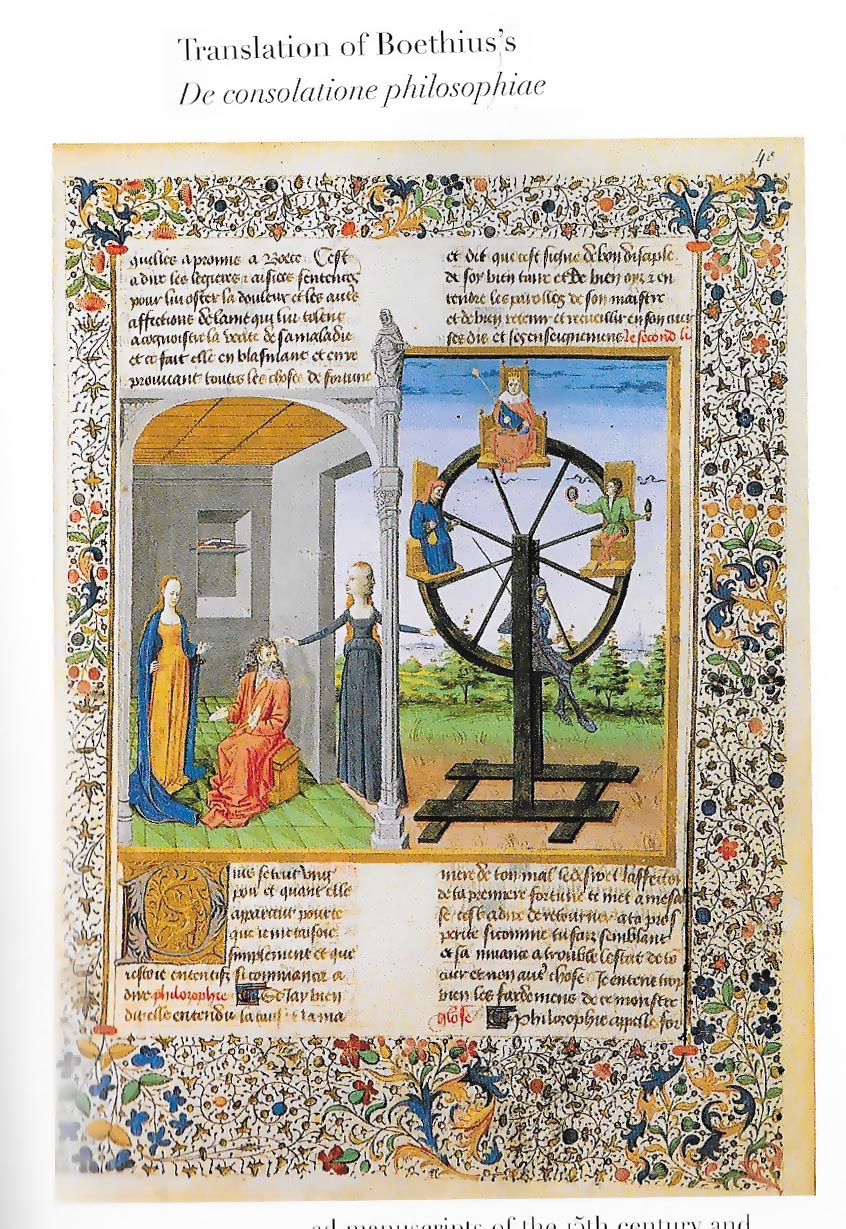 Translation of Boethius's
De consolatione philosophiae
quelles a promis a Boece Cest
a dire les legieres & aisiees sentences
pour lui oster la douleur et les
affections de lame qui lui tolent
a cognoistre la verite de sa maladie
et ce fait elle en blasmant et en re
prouuant toutes les choses de fortune
et dit que cest signe de bon disciple
de soy bien taire et de bien oyr & en
tendre les parolles de son maistre
et de bien retenir et recueillir en son cuer
ses dis et ses enseignemens le second li
Puis se teut vng
pou et quant elle
pour ce
que ie me taisoie
simplement et que
iestoie ententif si commenca a
dire philozophie Se iay bien
dit elle entendu la cause et la ma
niere de ton mal le desir et laffection
de ta premiere fortune te met a mesai
se cest a dire de retourner a ta pros
perite sicomme tu fais semblant
et sa muance a trouble lestat de to
cuer et non autre chose Je entens trop
bien les fardemens de ce monstre
glose Philozophie appelle for
ed manuscripts of the 15th century and